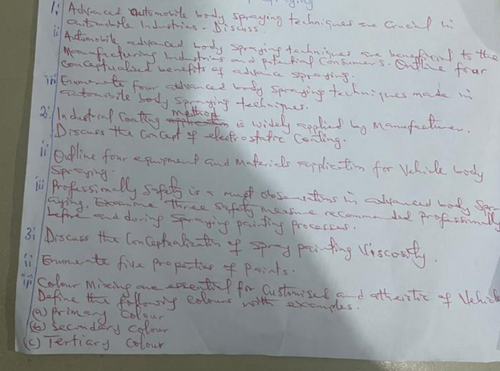 spraying
1: Advanced Automobile body spraying techniques are Crucial in
automobile Industries. Discuss.
ii Automobile advanced body spraying techniques are beneficial to the
Manufacturing Industries and potential Consumers. Outline four
Conceptualised benefits of advance spraying.
iii Enumerate four advanced body spraying techniques made in
automobile body spraying techniques.
2: Industrial Coating method is widely applied by Manufacturer.
Discuss the Concept of electrostatic Coating.
ii Outline four equipment and Materials application for Vehicle body
Spraying.
iii Professionally Safety is a must observations in advanced body Spr-
aying. Examine three Safety measure recommended professionally
before and during Spraying painting processes.
3: Discuss the Conceptualization of Spray painting Viscosity.
ii Enumerate five Properties of Paints.
iii Colour Mixing are essential for Customised and of Vehicle
Define the following colours with examples.
(a) Primary Colour
(b) Secondary Colour
(c) Tertiary Colour